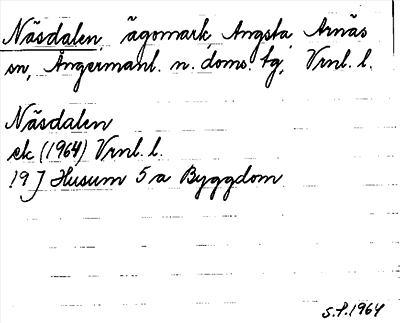 Näsdalen, ägomark Angsta Arnäs
sn, Ångermanl. n. doms. tg, Vrnl. l.
Näsdalen
ek (1964) Vrnl. l.
19 J Husum 5 a Byggdom
S.P. 1964